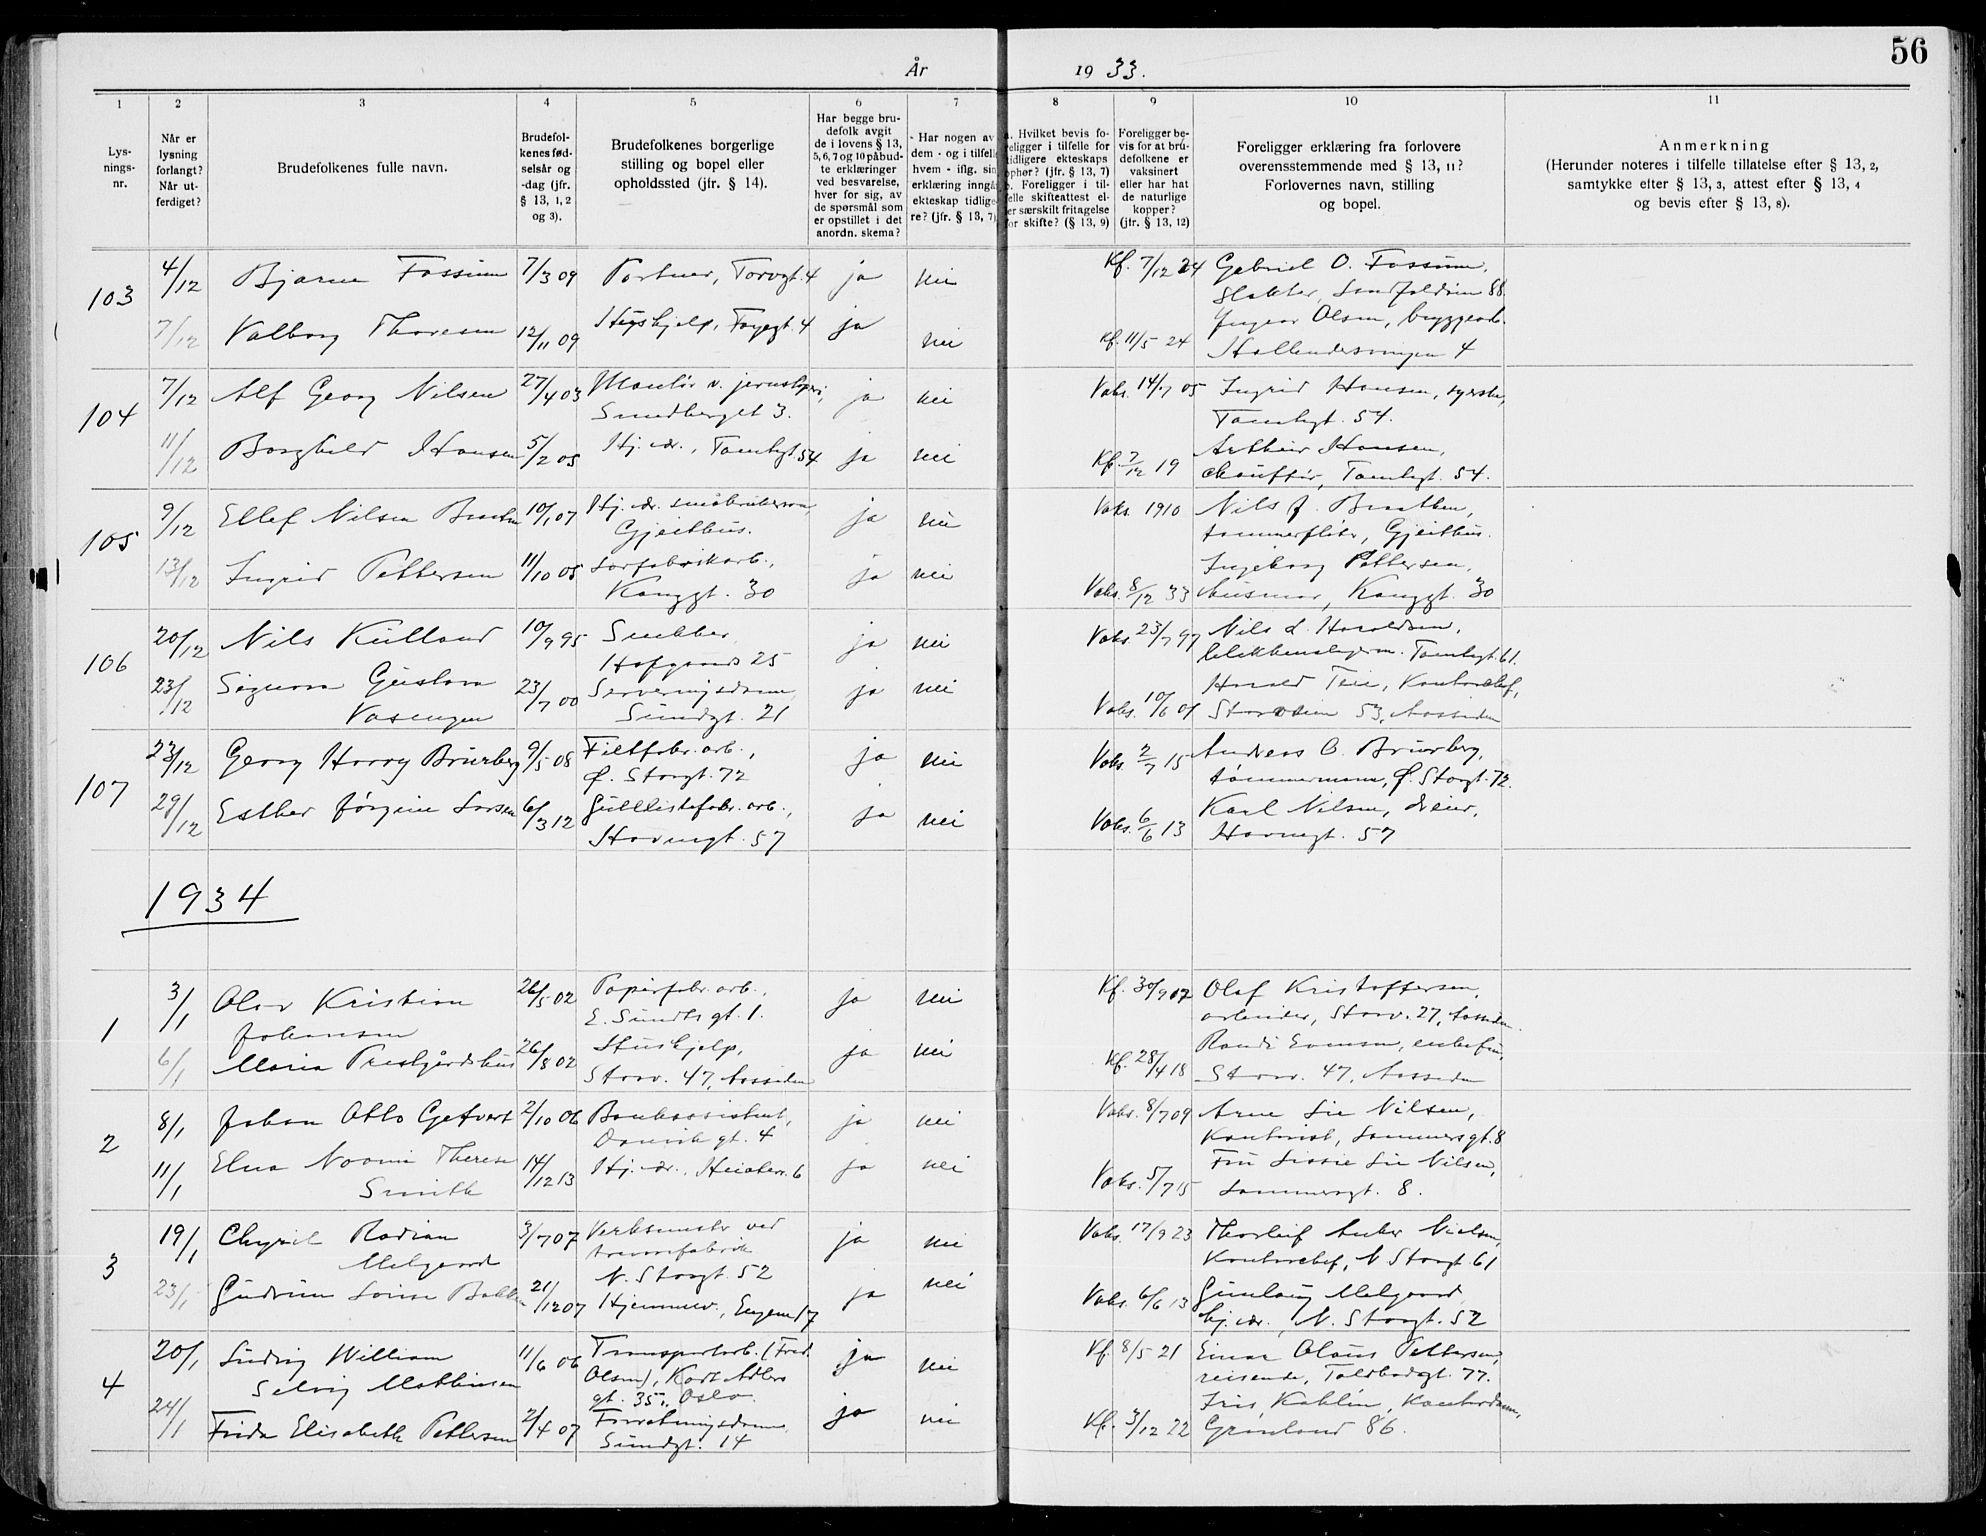 56
År 1933.
1 2 3 4 5 6 7 8 9 10 11
Lysningsnr.
Når er lysning forlangt? Når utferdiget?
Brudefolkenes fulle navn.
Brudefolkenes fødselsår og -dag (jfr. § 13, 1, 2 og 3).
Brudefolkenes borgerlige stilling og bopel eller opholdssted (jfr. § 14).
Har begge brudefolk avgit de i lovens § 13, 5, 6, 7 og 10 påbudte erklæringer ved besvarelse, hver for sig, av de spørsmål som er opstillet i det anordn. skema?
Har nogen av dem - og i tilfelle hvem - iflg. sin erklæring inngå ekteskap tidligere? (jfr. § 13, 7)
a. Hvilket bevis foreligger i tilfelle for tidligere ekteskaps ophør? (jfr. § 13, 7) b. Foreligger i tilfelle skifteattest eller særskilt fritagelse for skifte? (§ 13, 9)
Foreligger bevis for at brudefolkene er vaksinert eller har hat de naturlige kopper? (jfr. § 13, 12)
Foreligger erklæring fra forlovere overensstemmende med § 13, 11? Forlovernes navn, stilling og bopel.
Anmerkning (Herunder noteres i tilfelle tillatelse efter § 13, 2, samtykke efter § 13, 3, attest efter § 13, 4 og bevis efter § 13, 8).
103 4/12 Bjarne Fossum 7/3 09 Portner, Torvgt. 4 ja nei Kf. 7/12 24 Gabriel O. Fossum,
Slakter, 88.
7/12 Valborg Thoresen 12/11 09 Hushjelp, 4 ja nei Kf. 11/5 24 Olsen, bryggearb.
Hollendersvingen 4
104 7/12 Alf Georg Nilsen 27/4 03 Montør v. ja nei Vaks. 14/7 05 Ingrid Hansen, syerske,
Sundberget 3. Tomtegt. 54.
11/12 Borghild Hansen 5/2 05 Hj. vær., Tomtegt. 54 ja nei Kf. 7/12 19 Arthur Hansen,
chauffør, Tomtegt. 54.
105 9/12 Ellef Nilsen Braaten 10/1 07 Hj. vær. ja nei Vaks. 1910 Nils J. Braathen,
Gjeithus. tømmerfløter, Gjeithus.
13/12 Ingrid Pettersen 11/10 05 ja nei Ingeborg Pettersen,
Konggt. 30 Vaks. 8/12 33 husmor, Konggt. 30
106 20/12 Nils Kulland 10/9 95 Snekker ja nei Vaks. 23/7 97 Nils L. Haraldsen,
Hofgaards 25 Tomtegt. 61.
23/12 Signora Gustava 23/7 00 Serveringsdame, ja nei Harald Teie, Kontorchef,
Vasengen Sundgt. 21 Vaks. 10/6 01 Storveien 53, Aassiden
107 23/12 Georg Harry Bruerberg 9/5 08 Filtfabr. arb., ja nei Vaks. 2/7 15 Andreas O. Bruerberg,
Ø. Storgt. 72 tømmermann, Ø. Storgt. 72.
29/12 Esther Jørgine Larsen 6/3 12 Gullistefabr. arb., ja nei Vaks. 6/6 13 Karl Nilsen, dreier,
Havnegt. 57 Havnegt. 57
1934
1 3/1 Olav Kristian 26/5 02 Papirfabr. arb., ja nei Kf. 30/9 17 Olaf Kristoffersen,
Johansen E. Sundts gt. 1. arbeider, Storv. 27, Aassiden.
6/1 Maria Prestgårdshus 26/8 02 Hushjelp, ja nei Kf. 28/4 18 Randi Evensen, enkefru,
Storv. 47, Aassiden Storv. 47, Aassiden
2 8/1 Johan Otto Gefvert 2/10 06 Bankassistent, ja nei Vaks. 8/7 09 Arne Lie Nilsen,
Danvikgt. 4 Kontorist, Sommersgt. 8
11/1 Elna Noomi Therese 14/12 13 Hj. vær., 6 ja nei Fru Lissie Lie Nilsen,
Smith Vaks. 5/7 15 Sommersgt. 8.
3 19/1 Chyril Radian 3/7 07 Verksmester ved ja nei Vaks. 17/9 23 Thorleif Anker Nielsen,
Melgaard Kontorchef, N Storgt. 61
N. Storgt. 52
23/1 Gudrun Louise Bakken 21/12 07 Hjemmev., Engene 17 ja nei Vaks. 6/6 13 Gunlaug Melgaard,
hj. vær., N. Storgt. 52
4 20/1 Ludvig William 11/6 06 Transportarb. (Fred. ja nei Kf. 8/5 21 Einar Olaus Pettersen,
Selvig Mathiesen Olsen), Kort Adlers reisende, Toldbodgt. 77.
gt. 35, Oslo. Iris Kahlin, Kontordame,
24/1 Frida Elisabeth Pettersen 2/4 07 Forretningsdame, ja nei Kf. 3/12 22 Grønland 86.
Sundgt. 14